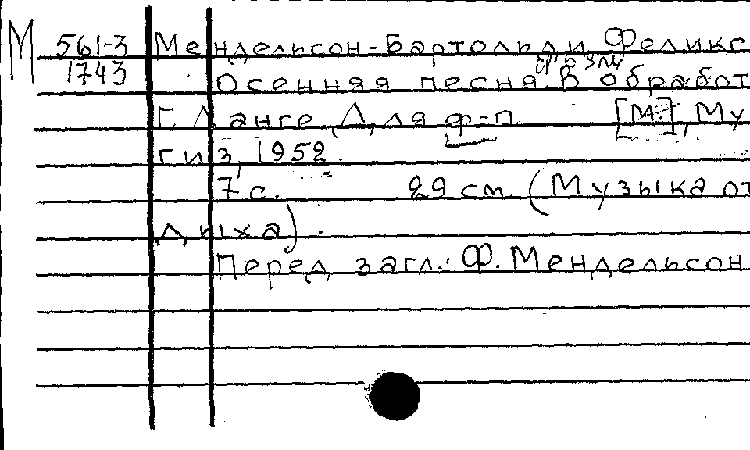 М 561-3 Мендельсон-Бартольди Феликс
1743 Осенняя песня. В обработ
Г. Ланге. Для ф-п. [М.], Му
гиз, 1952.
7 с. 29 см. (Музыка от
дыха).
Перед загл.: Ф. Мендельсон